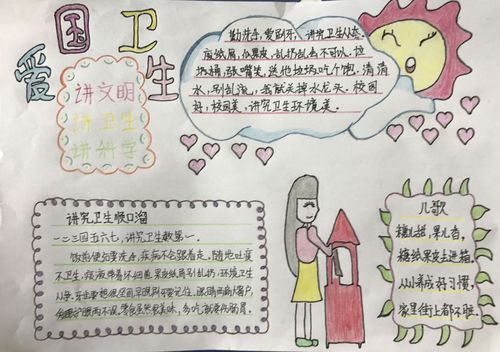 爱国卫生
讲文明
讲卫生
讲科学
勤洗手,爱刷牙,讲究卫生人人夸。
废纸屑,瓜果皮,乱扔乱丢不可以,垃
圾桶,张嘴笑,送他垃圾吃个饱,清清
水,别乱流,我就关掉水龙头。校园
好,校园美,讲究卫生环境美。
讲究卫生顺口溜
一二三四五六七,讲究卫生数第一。
饭前便后要洗手,疾病不会跟着走,随地吐痰
不卫生,
果皮纸屑别乱扔,环境卫生
儿歌
糖儿甜,果儿香,
糖纸果皮进箱,
从小养成好习惯,
家里街上都不脏。